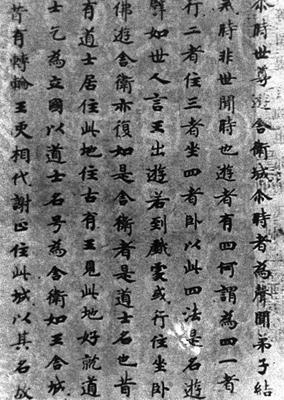 尒時世尊遊舍衛城尒時者為聲聞弟子結
氣時非世聞時也遊者有四何謂為四一者
行二者住三者坐四者卧以此四法是名遊
群如世人言王出遊若到戲處或行住坐卧
佛遊舍衛亦復如是舍衛者是道士名也昔
有道士居住此地往古有王見此地好就道
士乞為立國以道士名号為舍衛如王舍城
昔有轉輪王更相代謝止住此城以其名故